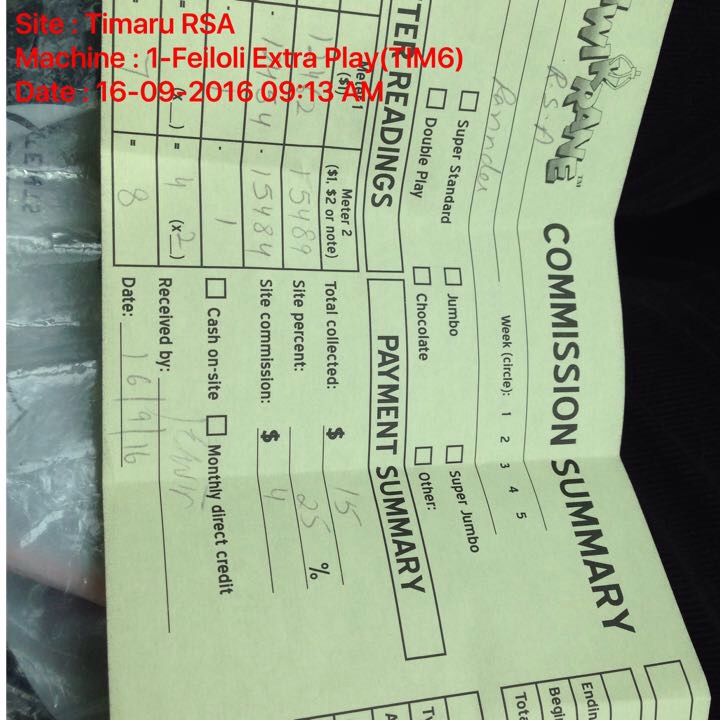 Site : Timaru RSA
Machine : 1-Feiloli Extra Play(TIM6)
Date : 16-09-2016 09:13 AM
COMMISSION SUMMARY
R.S.A
Week (circle): 1 2 3 4 5
Super Standard
Jumbo
Super Jumbo
Double Play
Chocolate
Other:
TER READINGS
Meter 1
($
Meter 2
($1, $2 or note)
15489
15484
1
= 4 (x 2)
= 8
PAYMENT SUMMARY
Total collected: $ 15
Site percent: 25 %
Site commission: $ 4
Cash on-site
Monthly direct credit
Received by:
Date: 16/9/16
Endin
Begi
Tot